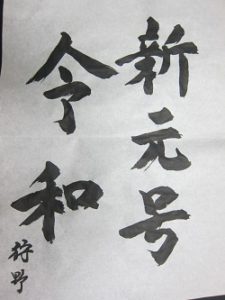 新元号
令和
狩野